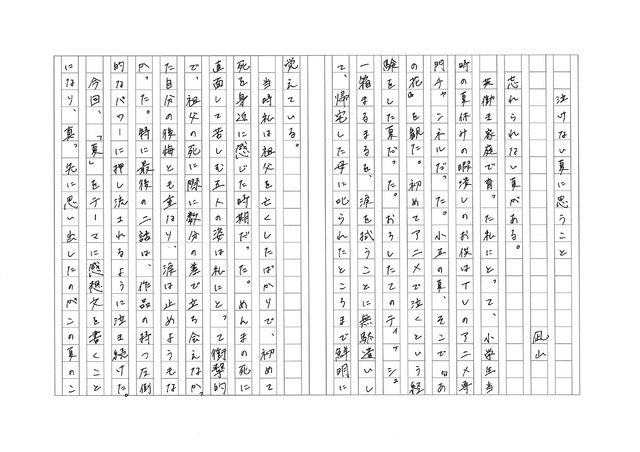 泣けない夏に思うこと
凪山
忘れられない夏がある。
共働き家庭で育った私にとって、小学生当
時の夏休みの暇潰しのお供はTVのアニメ専
門チャンネルだった。小五の夏、そこで『あ
の花』を観た。初めてアニメで泣くという経
験をした夏だった。おろしたてのティッシュ
一箱まるまるを、涙を拭うことに無駄遣いし
て、帰宅した母に叱られたところまで鮮明に
覚えている。
当時私は祖父を亡くしたばかりで、初めて
死を身近に感じた時期だった。めんまの死に
直面して苦しむ五人の姿は私にとって衝撃的
で、祖父の死に際に数分の差で立ち会えなかっ
た自分の後悔とも重なり、涙は止めようもな
かった。特に最後の二話は、作品の持つ圧倒
的なパワーに押し流されるように泣き続けた。
今回、「夏」をテーマに感想文を書くこと
になり、真っ先に思い出したのがこの夏のこ